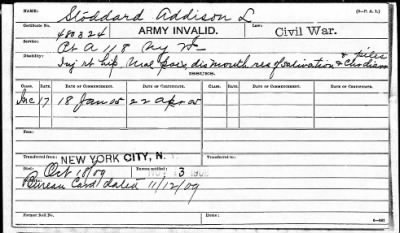 NAME: Stoddard Addison L (3-P. A. D.)
CERTIFICATE: 480324 ARMY INVALID. LAW: Civil War.
SERVICE: Pt A 118 Ny
DISABILITY: Inj rt hip, mal pois, dis mouth res of salivation & piles
ISSUES.
CLASS. RATE. DATE OF COMMENCEMENT. DATE OF CERTIFICATE. CLASS. RATE. DATE OF COMMENCEMENT. DATE OF CERTIFICATE.
Inc 17 18 Jan 05 22 Apr 05
Transferred from: NEW YORK CITY, N. Transferred to:
Died: Oct 18/09 Bureau notified: NOV 13
Bureau Card dated 11/12/09
Former Roll No. Home: